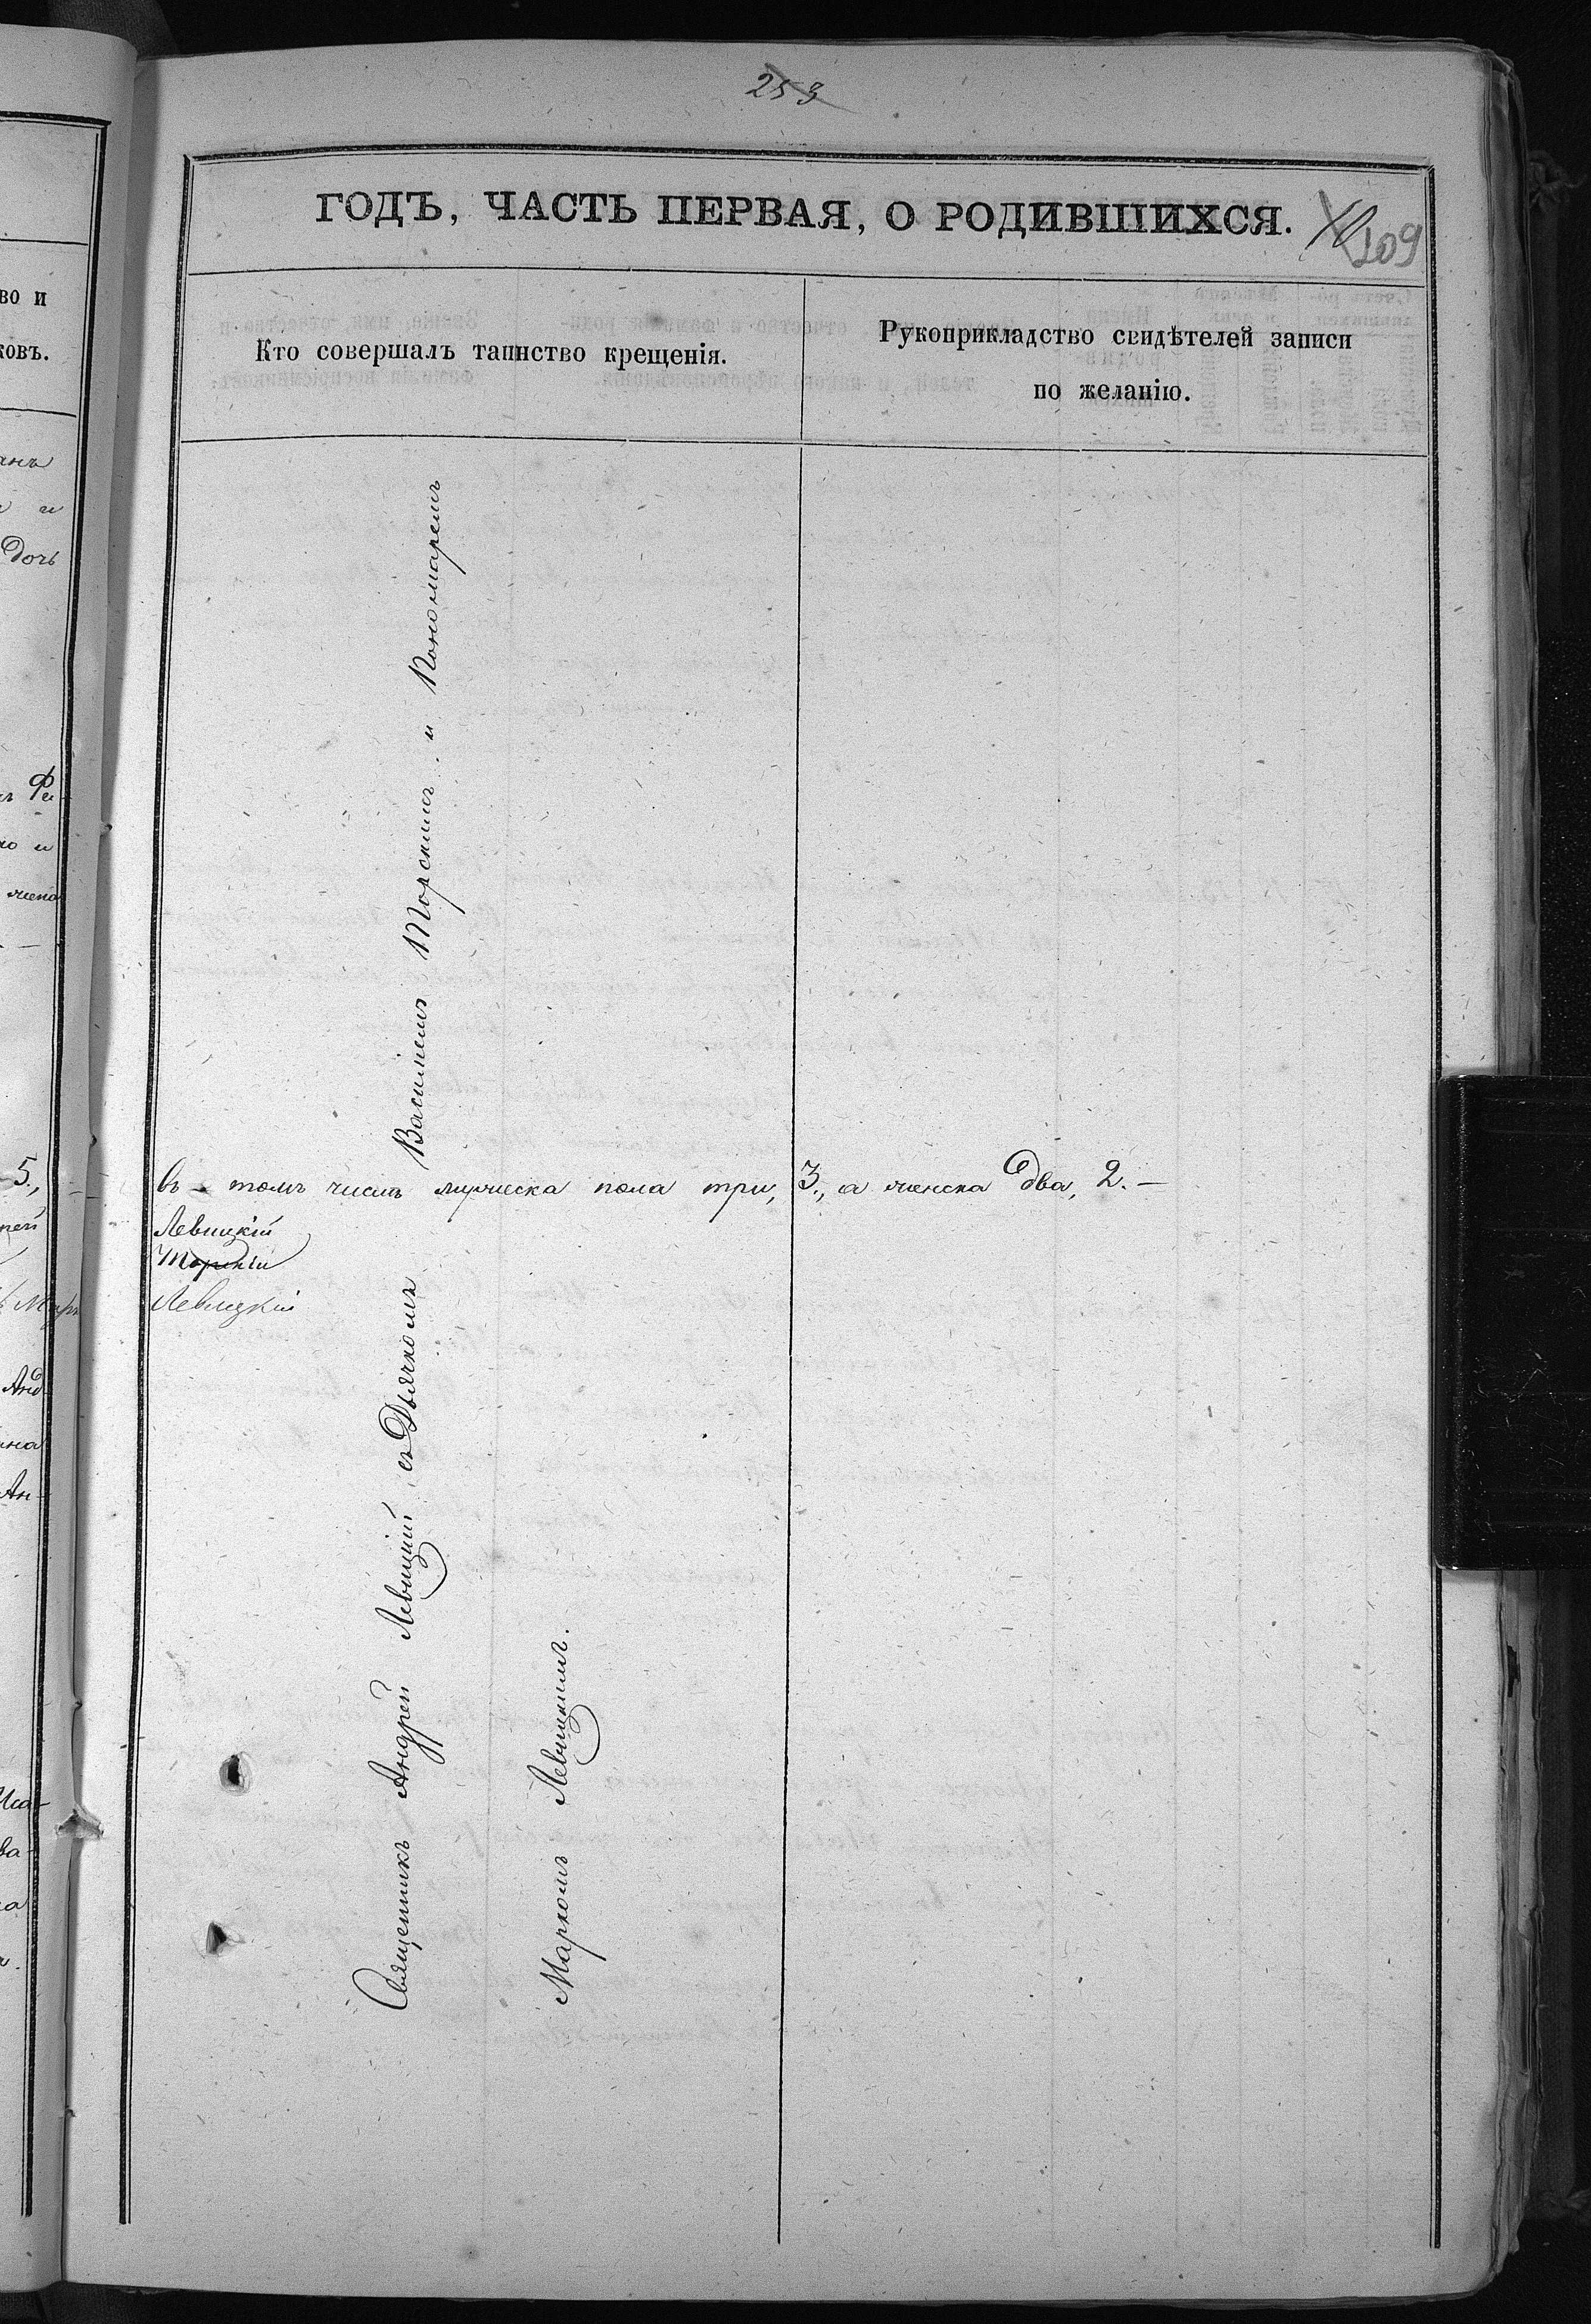 253
ГОДЪ, ЧАСТЬ ПЕРВАЯ, О РОДИВШИХСЯ.
109
во и
ковъ.
Кто совершалъ таинство крещенія.
Рукоприкладство свидѣтелей записи
по желанію.
Дочь
5.,
въ томъ числѣ мужеска пола три, 3., а женска два, 2. —
Левицкій
Торскій
Левицкій
Священникъ Андрей Левицкій съ Дьячкомъ
Василіемъ Торскимъ и Пономаремъ
Маркомъ Левицкимъ.